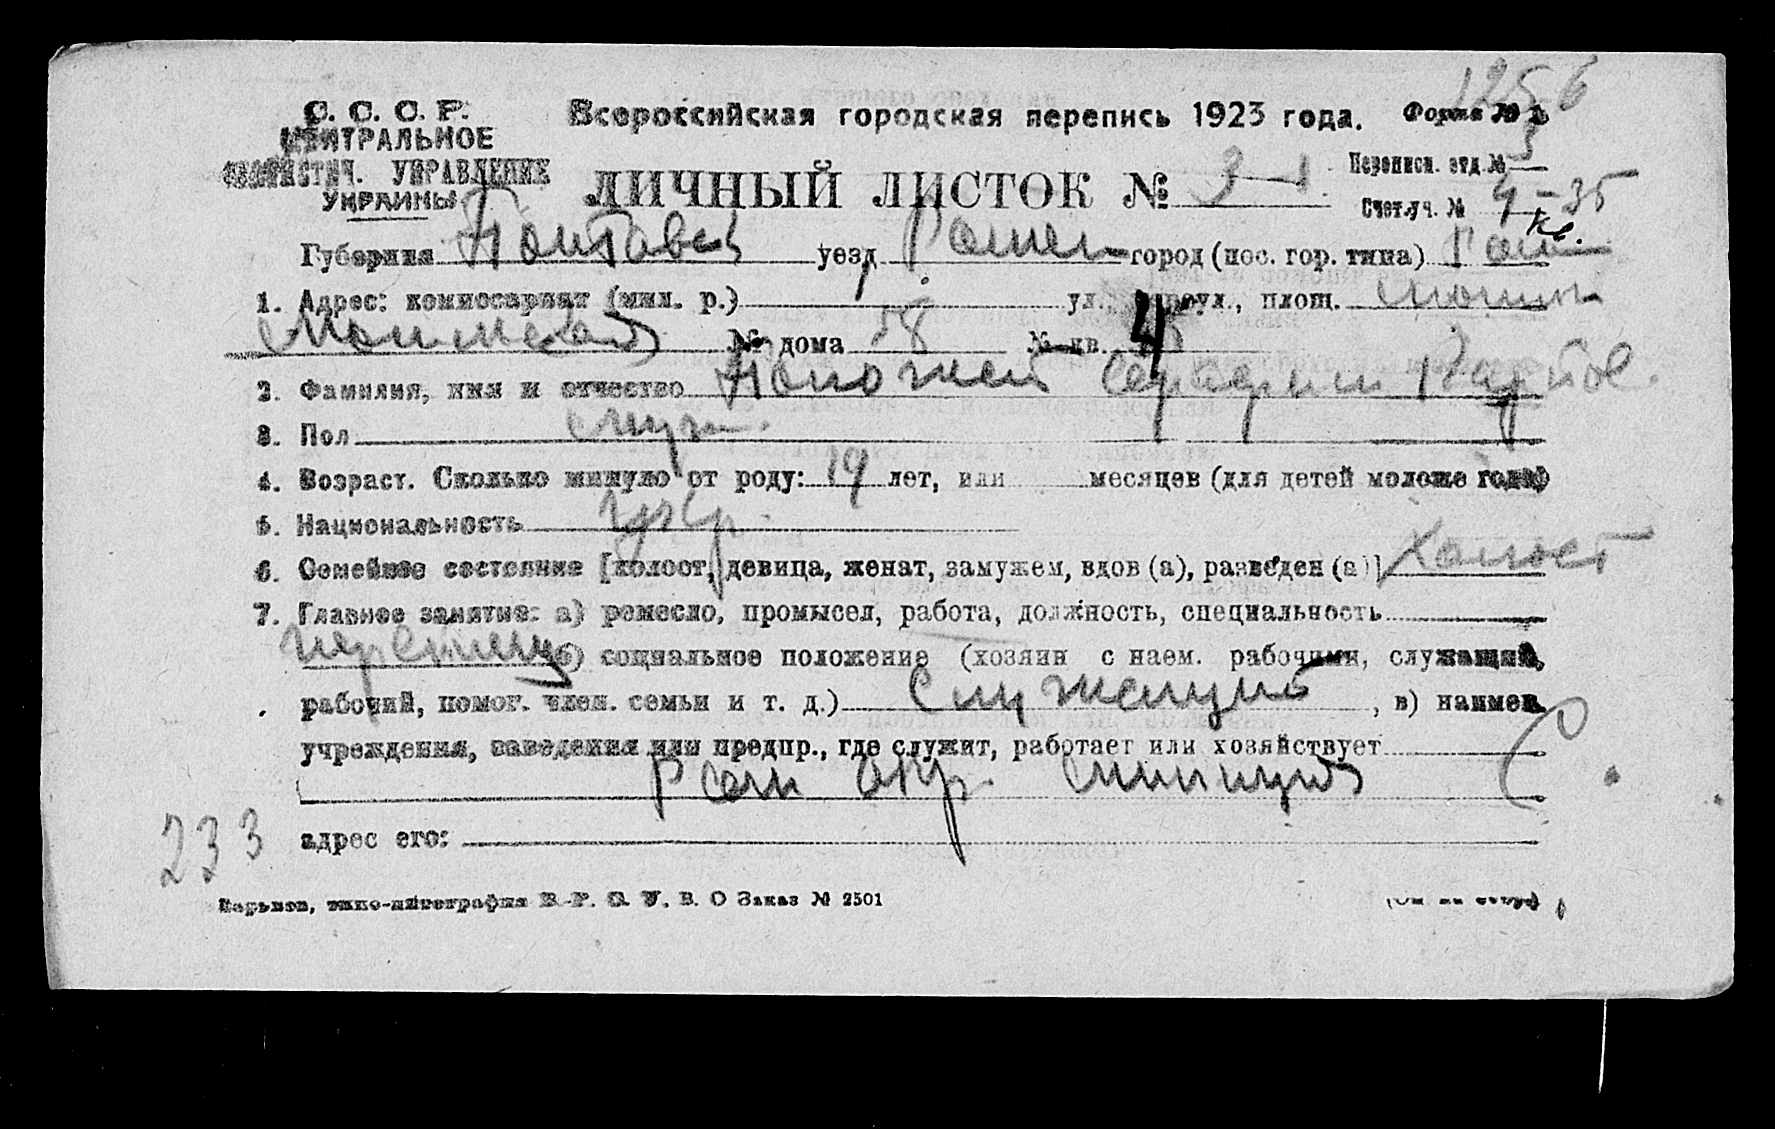 1256
С. С. С. Р. Всероссийская городская перепись 1923 года. Форма № 1
ЦЕНТРАЛЬНОЕ
СТАТИСТИЧ. УПРАВЛЕНИЕ
УКРАИНЫ
ЛИЧНЫЙ ЛИСТОК № 3-1
Переписн. отд. № 3
Счет. уч. № 4-35
кв.
Губерния Полтавск уезд Ромен город (пос. гор. типа) Ром
1. Адрес: комиссариат (мил. р.) ул., переул., площ.
№ дома 58 № кв. 4
2. Фамилия, имя и отчество Серафим
3. Пол муж.
4. Возраст. Сколько минуло от роду: 19 лет, или месяцев (для детей моложе года)
5. Национальность укр.
6. Семейное состояние [холост, девица, женат, замужем, вдов (а), разведен (а)] Холост
7. Главное занятие: а) ремесло, промысел, работа, должность, специальность
б) социальное положение (хозяин с наем. рабочими, служащий,
рабочий, помог. член. семьи и т. д.) Служащий, в) наимен.
учреждения, заведения или предпр., где служит, работает или хозяйствует
Ром окр. милиция
233 адрес его:
Харьков, типо-литография В. Р. С. У. В. О Заказ № 2501